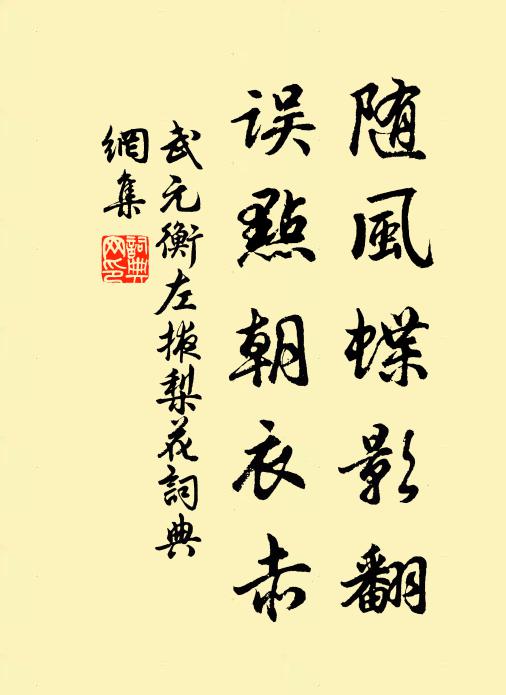 随風蝶影翻
误點朝衣赤
武元衡左掖梨花詞典
網集
詞典
网印